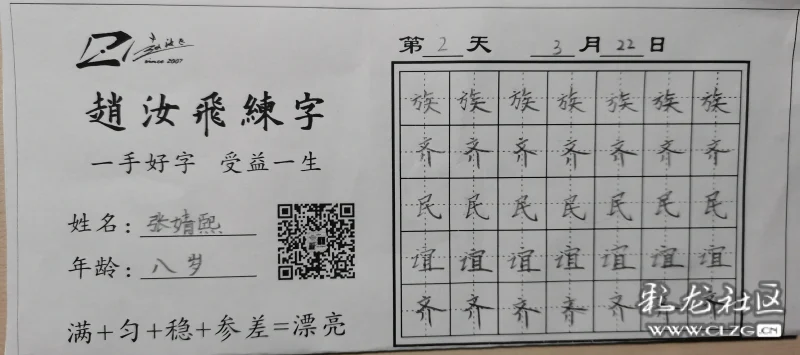 since 2007
趙汝飛練字
一手好字 受益一生
姓名：张婧熙
年龄：八岁
满+匀+稳+参差=漂亮
第2天 3月22日
族族族族族族族
齐齐齐齐齐齐齐
民民民民民民民
谊谊谊谊谊谊谊
齐齐齐齐齐齐齐
彩龙社区
WWW.CLZG.CN